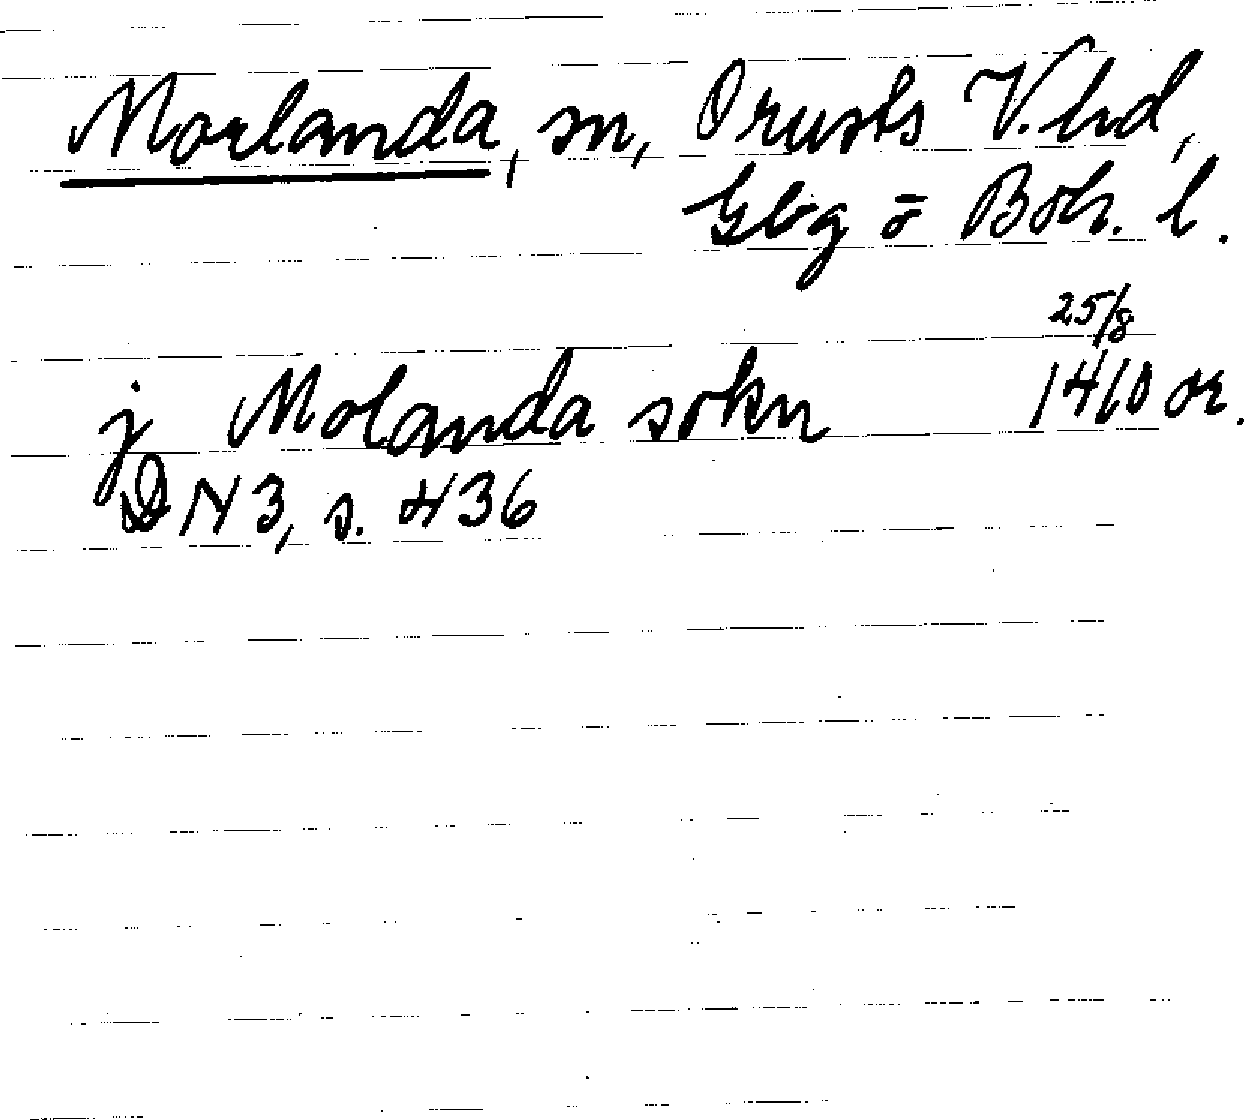 Morlanda, sn, Orusts V. hd,
Gbg o Boh. l.
25/8
j Molanda sokn 1410 or.
DN 3, s. 436